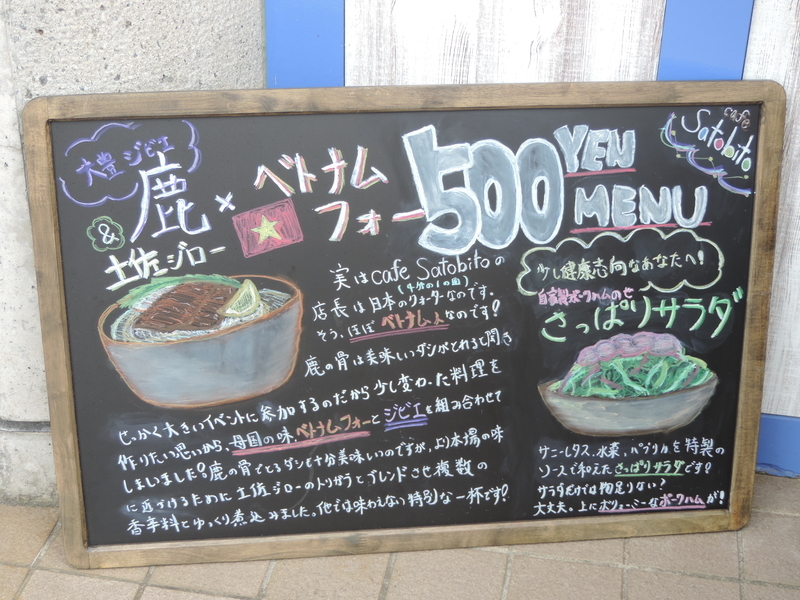 大豊ジビエ
鹿
&
土佐ジロー
×
ベトナム
フォー
500
YEN
MENU
cafe
Satobito
実はcafe Satobitoの
(4分の1の国)
店長は日本のクォーターなのです。
そう、ほぼベトナム人なのです?
鹿の骨は美味しいダシがとれると聞き
せっかく大きいイベントに参加するのだから少し変わった料理を
作りたい思いから、母国の味、ベトナムフォーとジビエを組み合わせて
しまいました?鹿の骨でとるダシも十分美味しいのですが、より本場の味
に近づけるために土佐ジローのトリガラとブレンドさせ複数の
香辛料とゆっくり煮込みました。他では味わえない特別な一杯です?
少し健康志向なあなたへ!
自家製ポークハムのせ
さっぱりサラダ
サニーレタス、水菜、パプリカを特製の
ソースで和えたさっぱりサラダです?
サラダだけでは物足りない?
大丈夫。上にボリューミーなポークハムが!